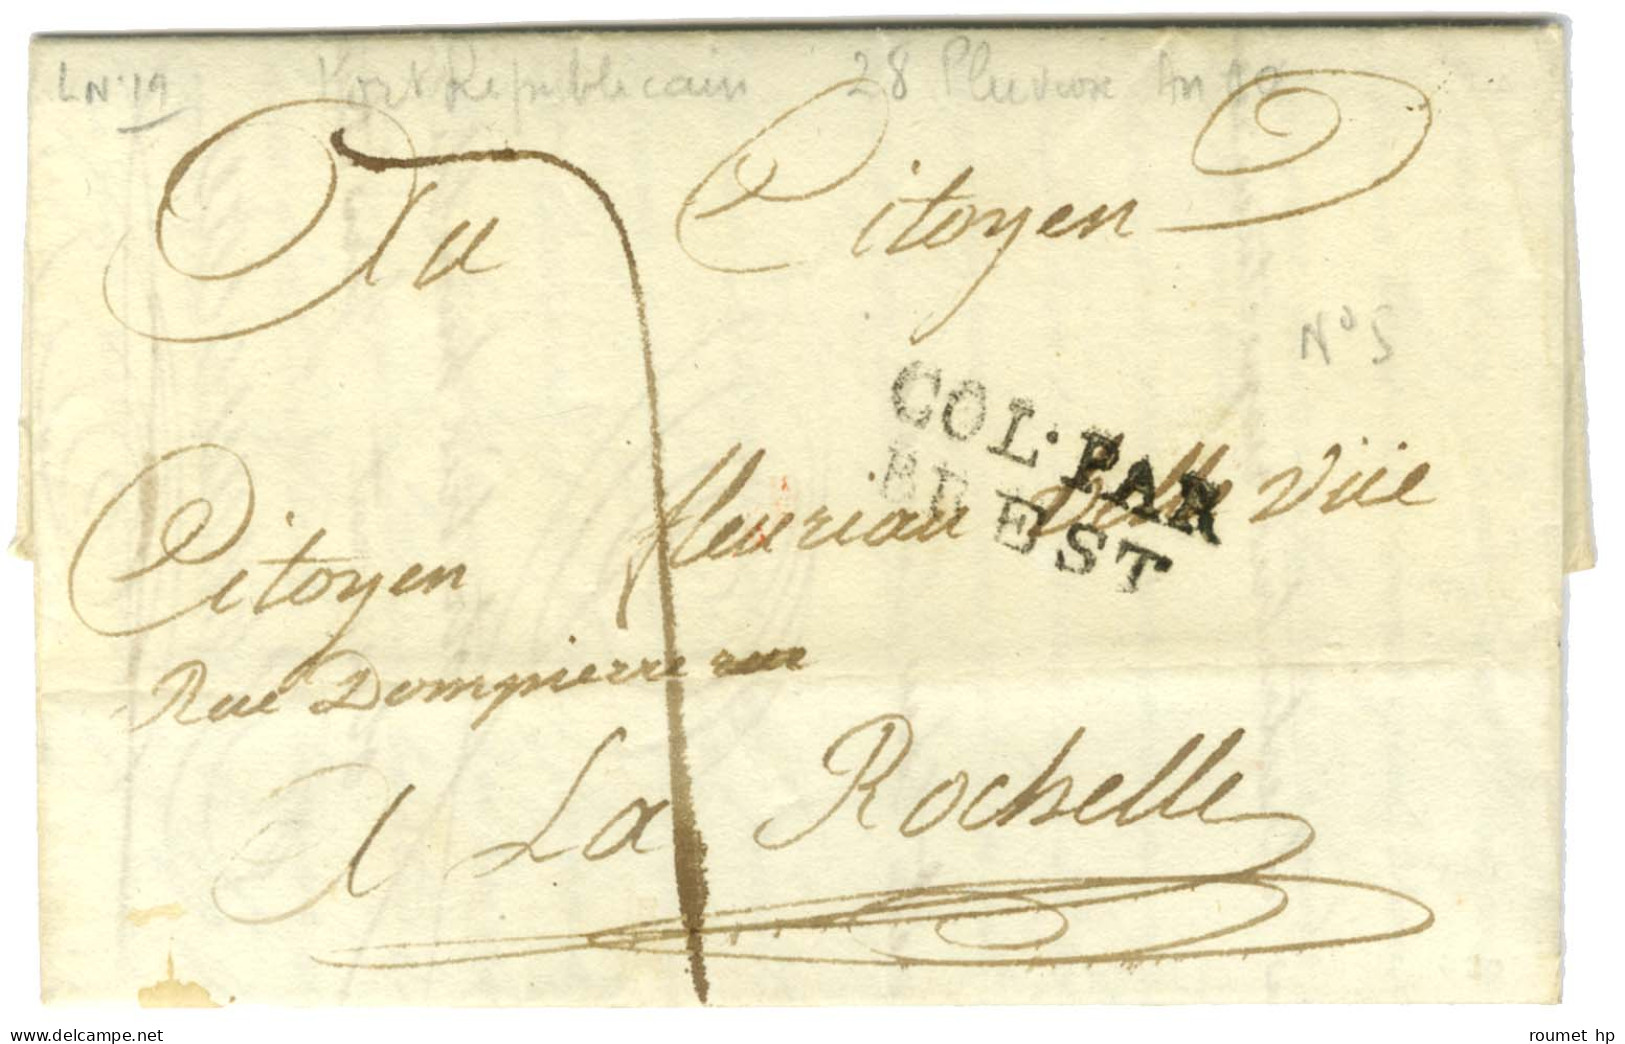 LN°19 Port Républicain 28 Pluviose An 10
Au Citoyen
N°5
COL·PAR
BREST
Citoyen fleuriau Belle Vüe
Rue Dompierre rue
A La Rochelle
delcampe.net
roumet hp